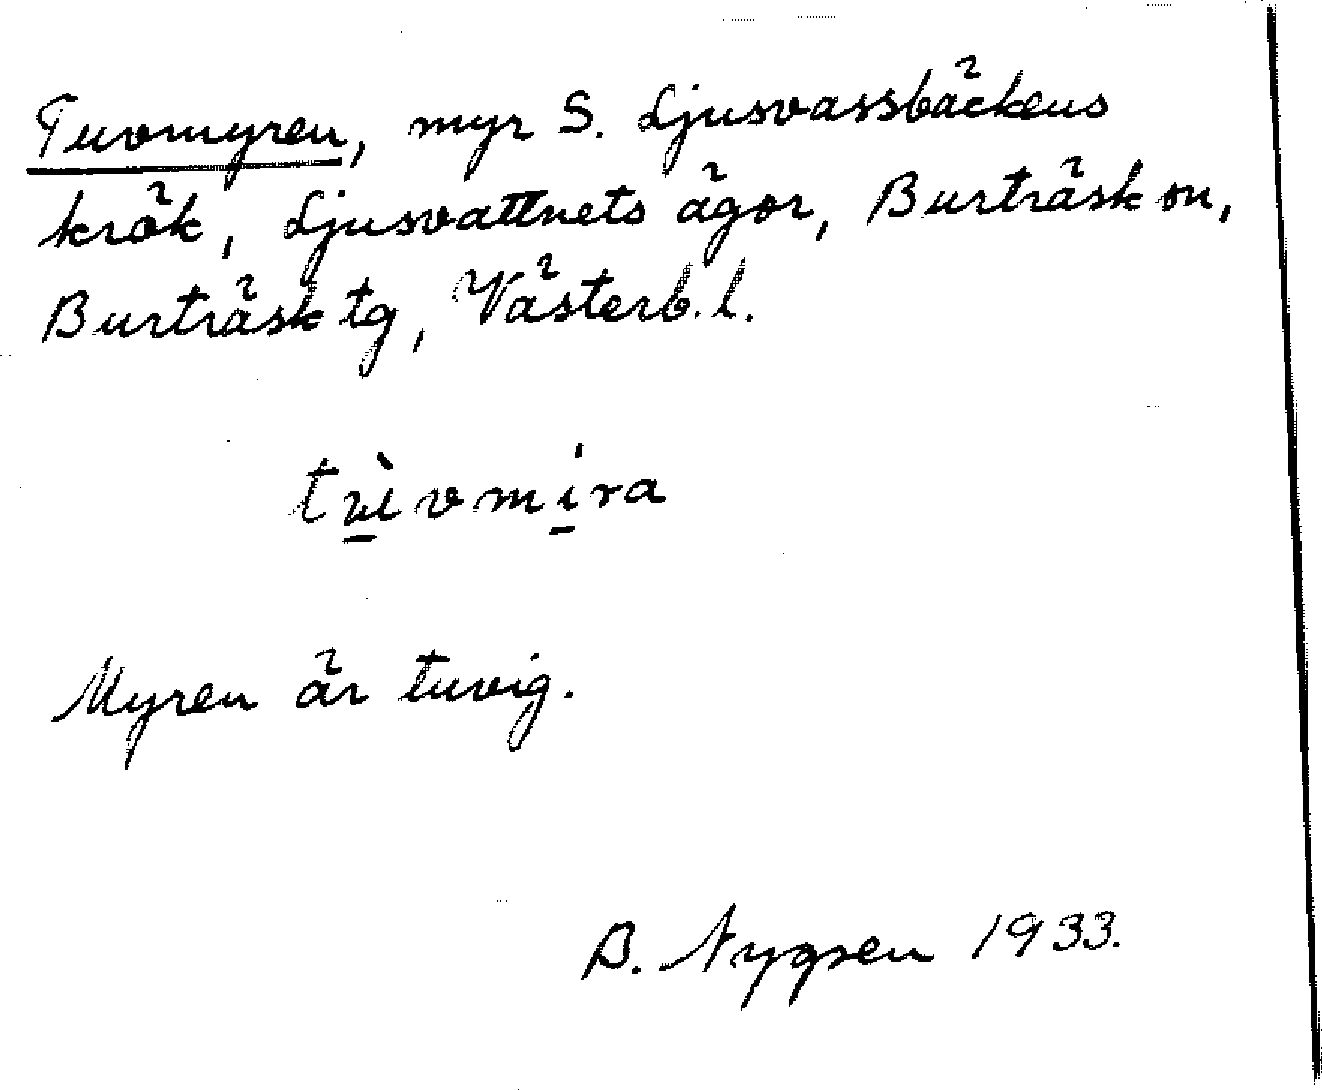 Tuvmyren, myr S. Ljusvassbäckens
kräk, Ljusvattnets ägor, Burträsk sn,
Burträsk tg, Västerb. l.
tu̱̇̀vmi̱ra
Myren är tuvig.
B. Nygren 1933.